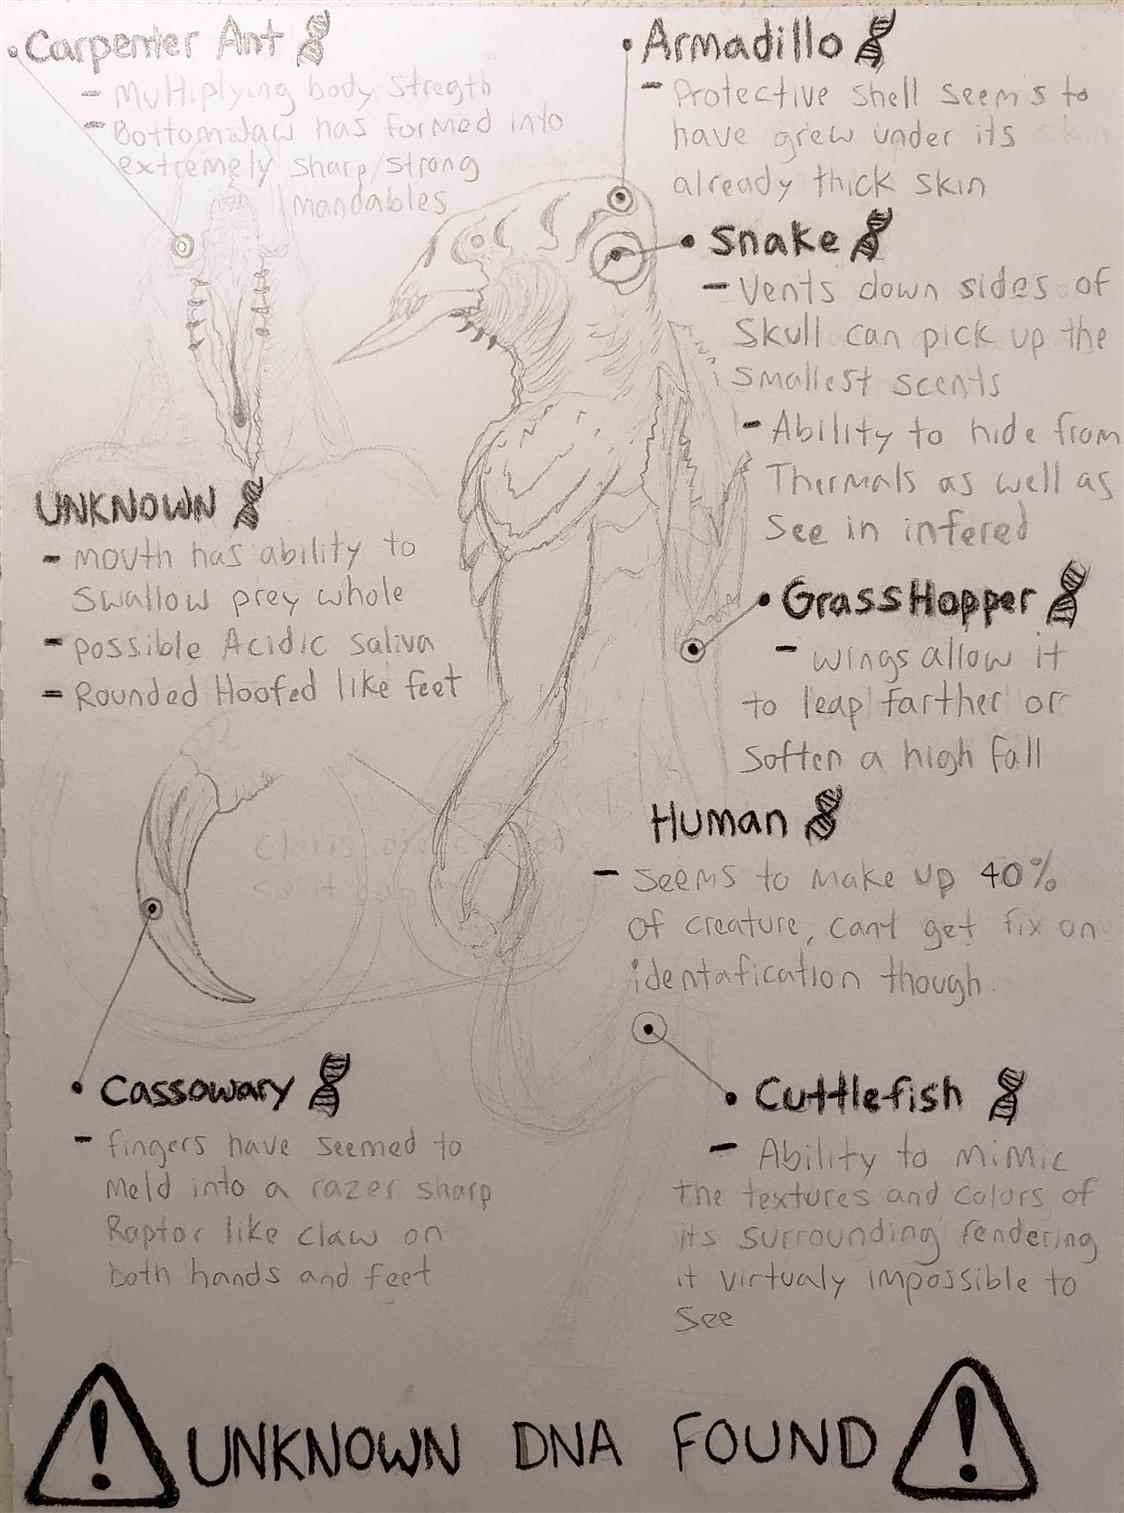 Carpenter Ant
- Multiplying body stregth
- Bottom Jaw has formed into
extremely sharp/strong
mandables
Armadillo
- Protective shell seems to
have grew under its skin
already thick skin
Snake
- Vents down sides of
Skull can pick up the
smallest scents
- Ability to hide from
Thermals as well as
see in infered
UNKNOWN
- mouth has ability to
swallow prey whole
- possible Acidic saliva
- Rounded Hoofed like feet
GrassHopper
- wings allow it
to leap farther or
soften a high fall
Human
- seems to make up 40%
of creature, cant get fix on
identafication though.
Cassowary
- fingers have seemed to
Meld into a razer sharp
Raptor like claw on
both hands and feet
Cuttlefish
- Ability to mimic
the textures and colors of
its surrounding rendering
it virtualy impossible to
see
UNKNOWN DNA FOUND